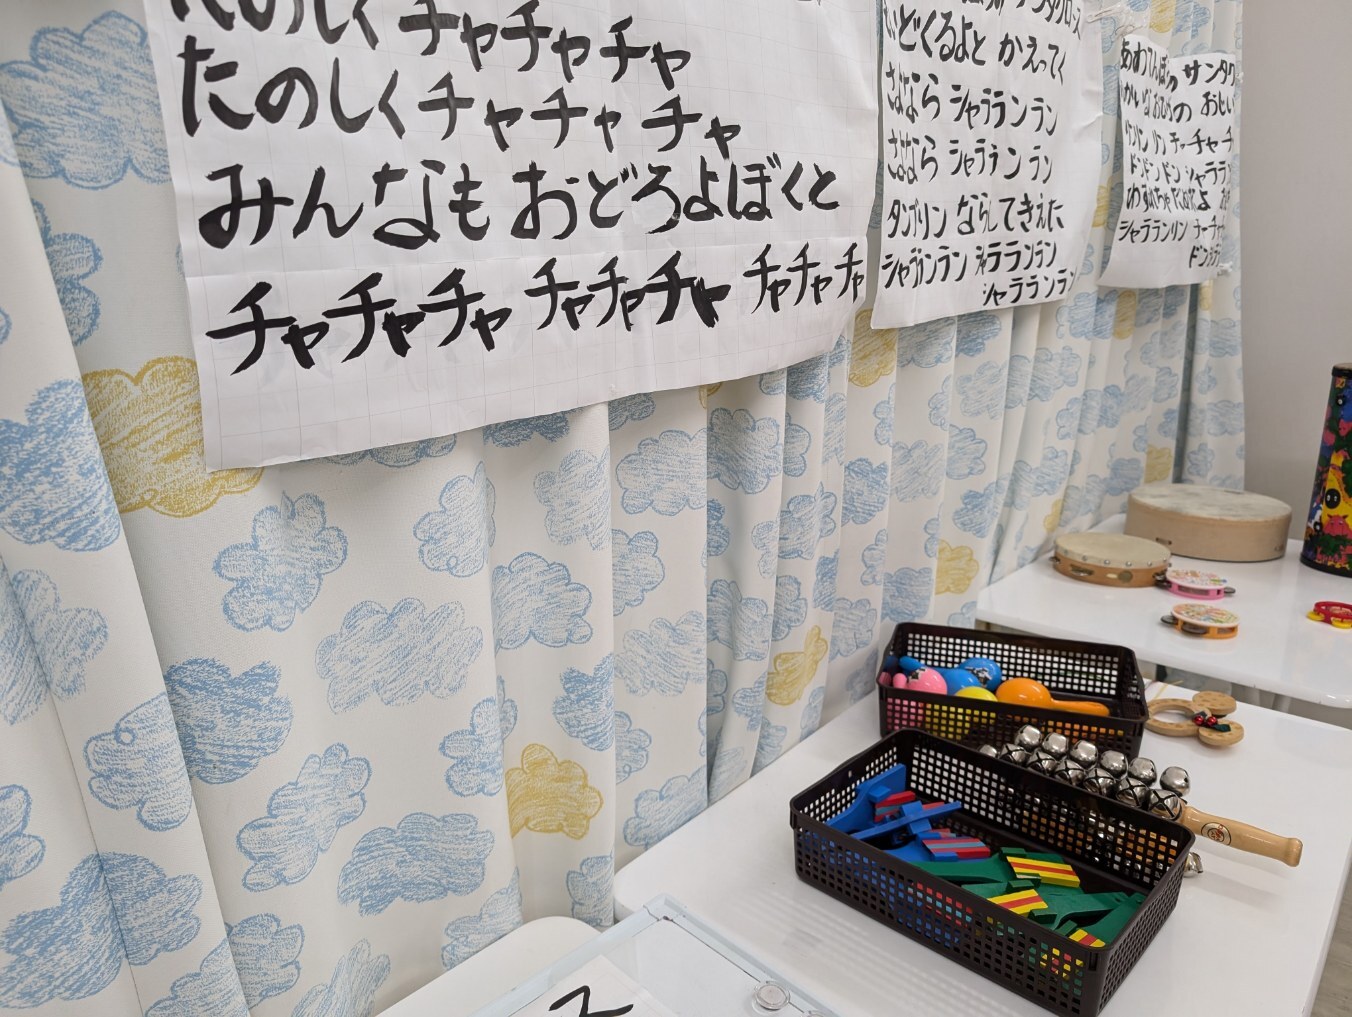 たのしくチャチャチャ
たのしくチャチャチャ
みんなも おどろよぼくと
チャチャチャ チャチャチャ チャチャチャ
サンタクロース
いどくるよと かえってく
さよなら シャラランラン
さよなら シャラランラン
タンブリン ならしてきえた
シャラランラン シャラランラン
シャラランラン
あわてんぼうの サンタク
ゆかいなおひげの おじい
リンリンリン チャチャチャ
ドンドンドン シャララ
わすれちゃだめだよ
シャラランリン チャチャ
ドンシャラ
ス